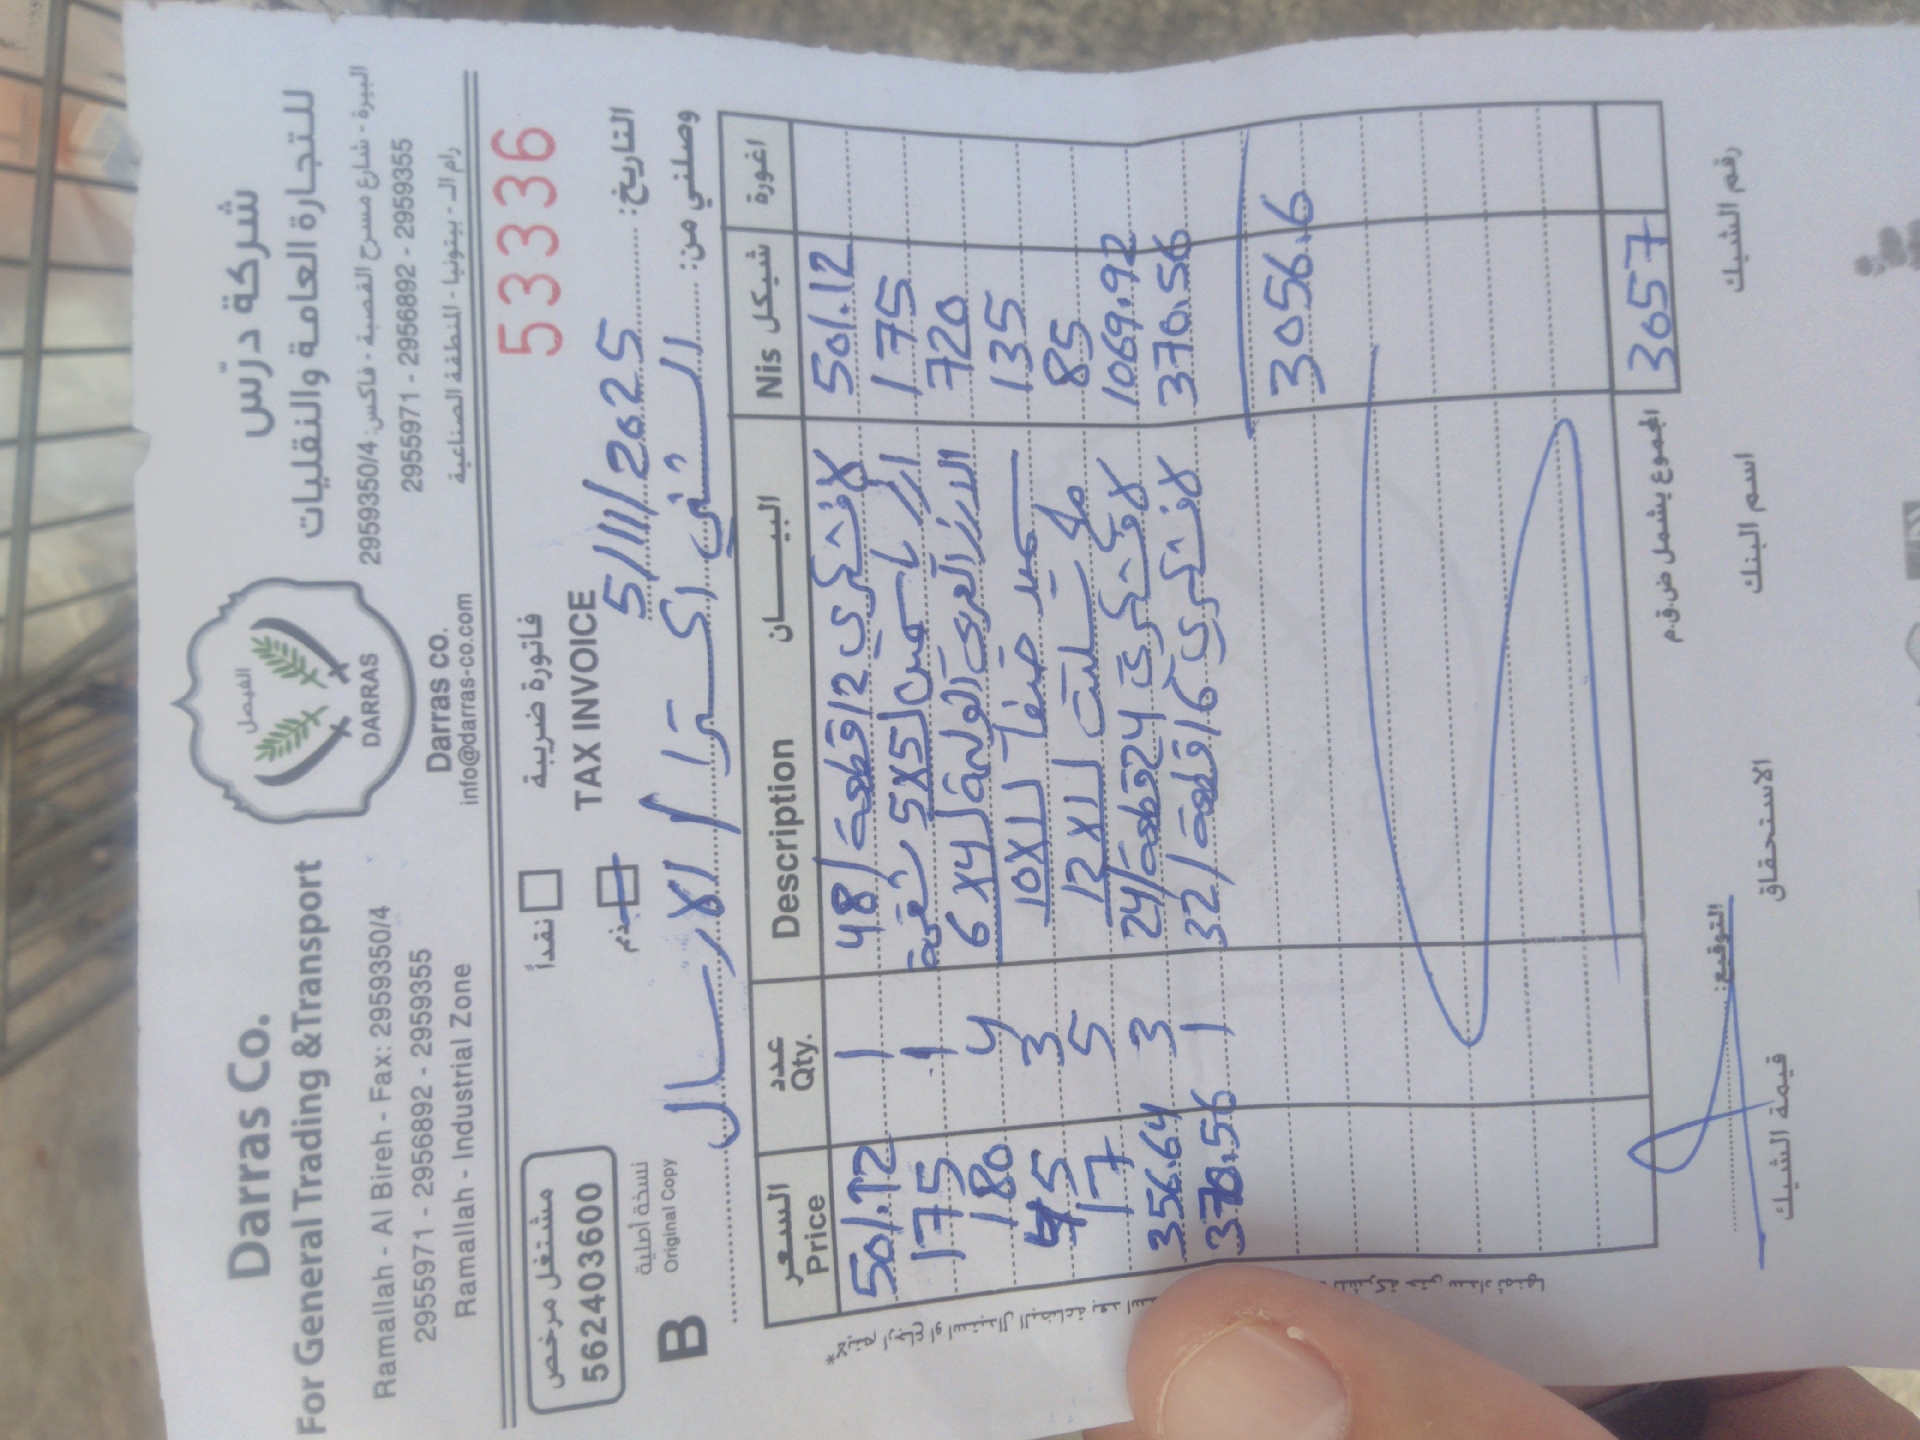 Darras Co.
For General Trading & Transport
Ramallah - Al Bireh - Fax: 2959350/4
2955971 - 2956892 - 2959355
Ramallah - Industrial Zone
الفيصل
DARRAS
Darras co.
info@darras-co.com
شركة درّس
للتجارة العامة والنقليات
البيرة - شارع مسرح القصبة - فاكس: 2959350/4
2955971 - 2956892 - 2959355
رام الله - بيتونيا - المنطقة الصناعية
مشتغل مرخص
562403600
نقداً
ذمم
فاتورة ضريبة
TAX INVOICE
53336
B
نسخة أصلية
Original Copy
التاريخ: 5/11/2025
وصلني من: الشني اكسترا / الارسال
السعر Price عدد Qty. Description البيـــان شيكل Nis اغورة
501.12 1 48/ قطعة 12 501.12
175 1 5x5 175
180 4 6x4 720
45 3 10x1 135
17 5 12x1 85
356.64 3 24/ قطعة 24 1069.92
370.56 1 32/ قطعة 16 370.56
3056.6
المجموع يشمل ض.ق.م 3057
التوقيع:
قيمة الشيك الاستحقاق اسم البنك رقم الشيك